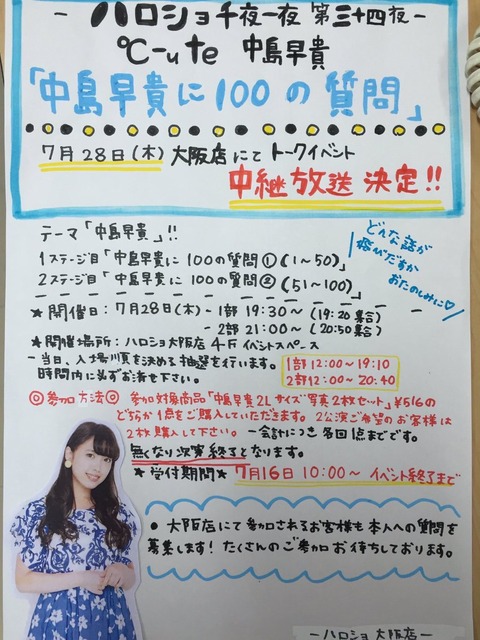 - ハロショ千夜一夜 第三十四夜 -
℃-ute 中島早貴
「中島早貴に100の質問」
7月28日(木) 大阪店にて トークイベント
中継放送 決定!!
テーマ「中島早貴」!!
1ステージ目「中島早貴に100の質問①(1~50)」
2ステージ目「中島早貴に100の質問②(51~100)」
どんな話が
飛びだすか
おたのしみに♡
★開催日:7月28日(木)- 1部 19:30~(19:20集合)
- 2部 21:00~(20:50集合)
★開催場所:ハロショ大阪店 4F イベントスペース
- 当日、入場順を決める抽選を行います。
時間内に必ずお済を下さい。
1部 12:00~19:10
2部 12:00~20:40
◎参加方法◎ 参加対象商品「中島早貴2Lサイズ写真2枚セット」¥516の
どちらか1点をご購入していただきます。2公演ご希望のお客様は
2枚購入して下さい。 一会計につき各回1点までです。
無くなり次第終了となります。
★受付期間★ 7月16日 10:00~ イベント終了まで
●大阪店にて参加されるお客様も本人への質問を
募集します! たくさんのご参加お待ちしております。
-ハロショ大阪店-